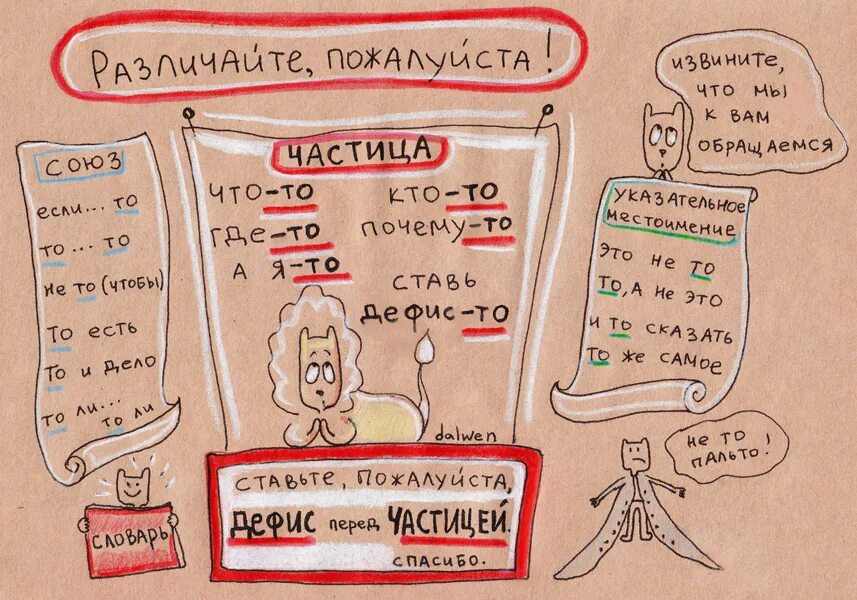 Различайте, пожалуйста!
СОЮЗ
если... то
то... то
не то (чтобы)
То есть
То и дело
то ли... то ли
СЛОВАРЬ
ЧАСТИЦА
ЧТО-ТО КТО-ТО
ГДЕ-ТО ПОЧЕМУ-ТО
А Я-ТО
СТАВЬ
ДЕФИС-ТО
dalwen
СТАВЬТЕ, ПОЖАЛУЙСТА,
ДЕФИС перед ЧАСТИЦЕЙ.
СПАСИБО.
ИЗВИНИТЕ,
ЧТО МЫ
К ВАМ
ОБРАЩАЕМСЯ
УКАЗАТЕЛЬНОЕ
МЕСТОИМЕНИЕ
ЭТО НЕ ТО
ТО, А НЕ ЭТО
И ТО СКАЗАТЬ
ТО ЖЕ САМОЕ
НЕ ТО
ПАЛЬТО!